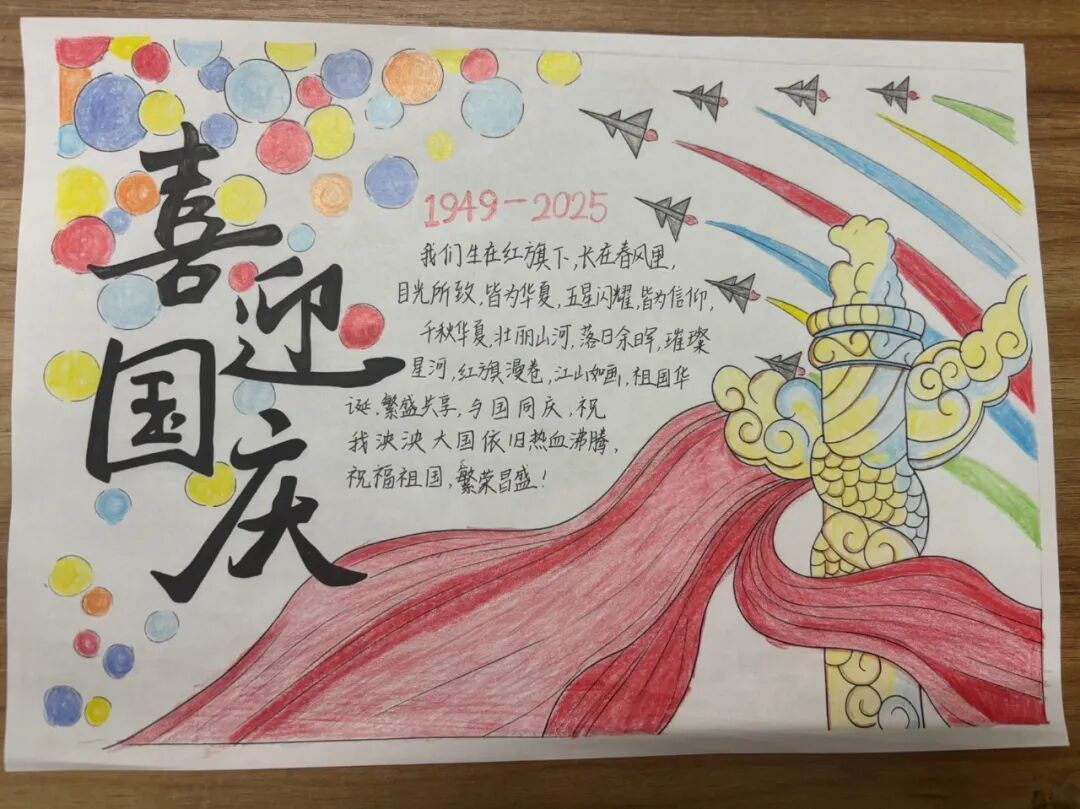 喜迎国庆
1949－2025
我们生在红旗下,长在春风里,
目光所致,皆为华夏,五星闪耀,皆为信仰,
千秋华夏,壮丽山河,落日余晖,璀璨
星河,红旗漫卷,江山如画,祖国华
诞、繁盛共享,与国同庆,祝
我泱泱大国依旧热血沸腾,
祝福祖国,繁荣昌盛!